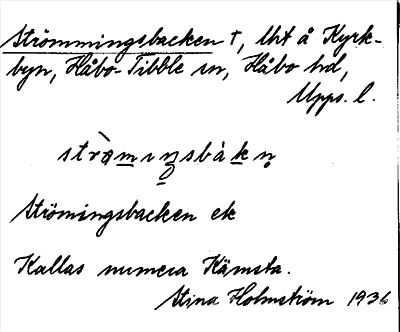 Strömmingsbacken †, lht å Kyrk-
byn, Håbo-Tibble sn, Håbo hd,
Upps. l.
Strömingsbacken ek
Kallas numera Kämsta.
Stina Holmström 1936